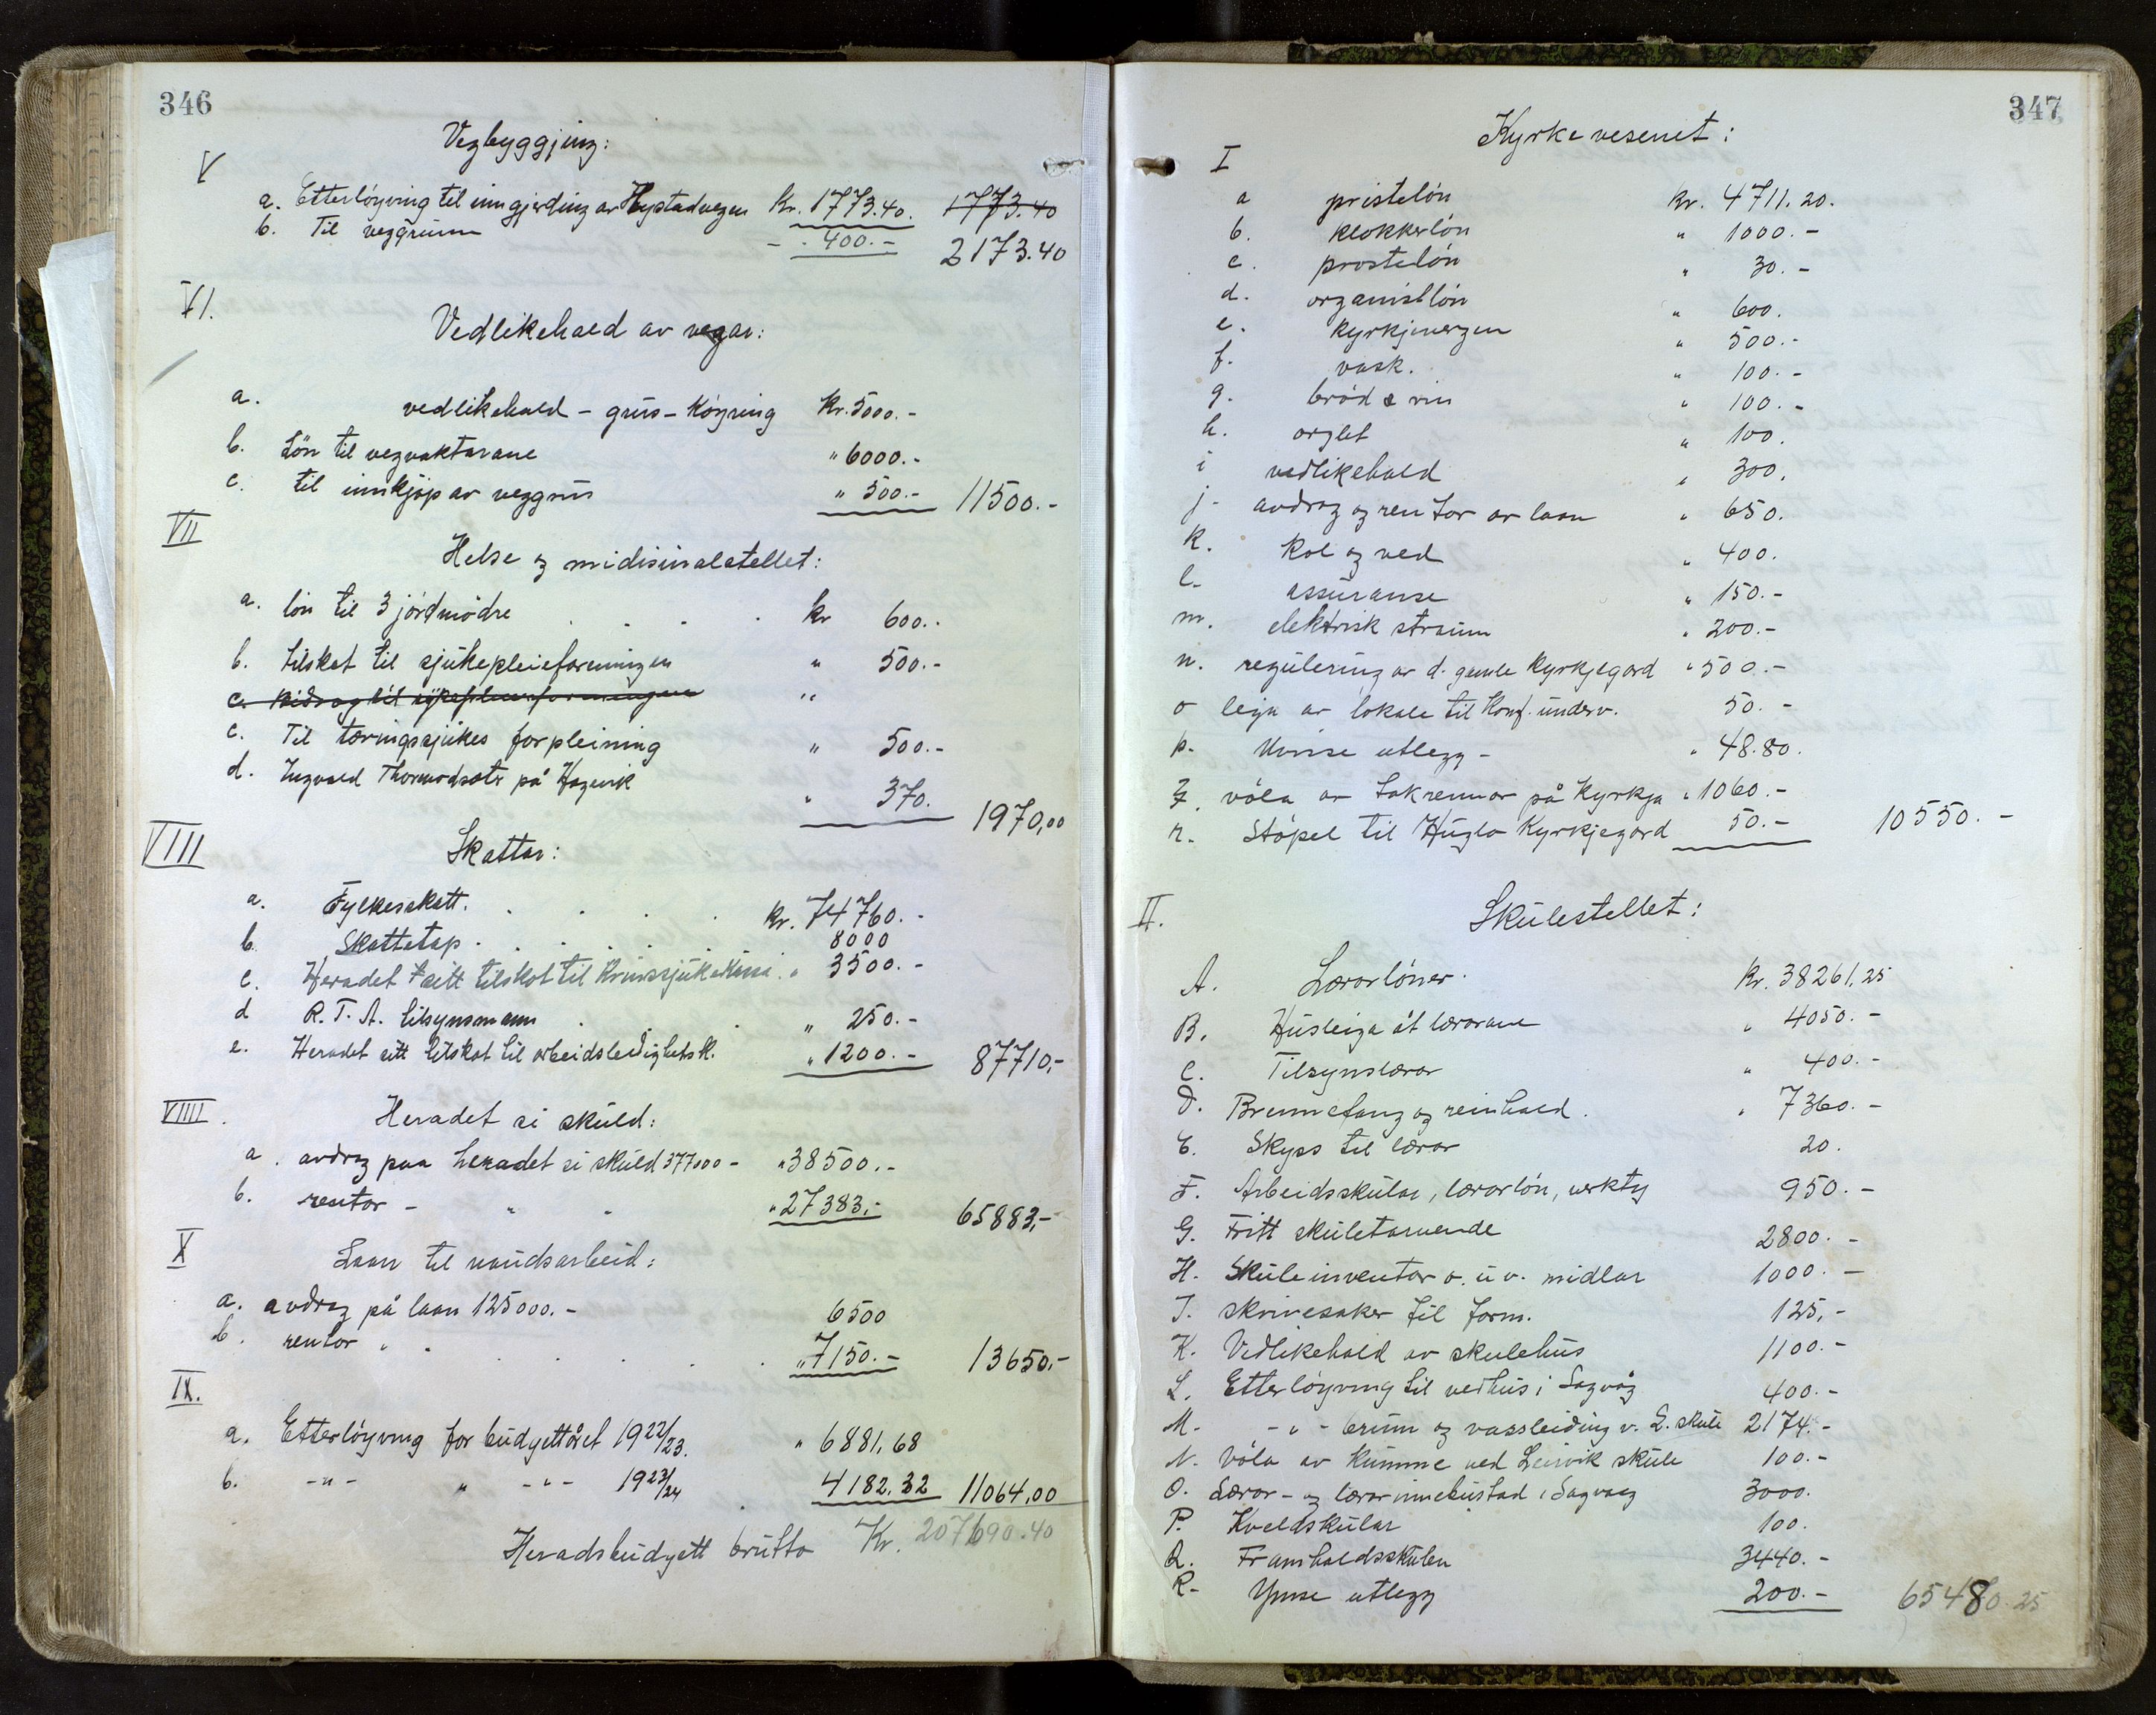 346
Vegbyggjing:
V
a. Etterlöyving til inngjerding av Hystadvegen Kr. 1773.40. 1773.40
b. Til veggrunn - . 400.- 2173.40
VI.
Vedlikehald av vegar:
a. vedlikehald - grus -Köyring Kr. 5000.-
b. Lön til vegvaktarane " 6000.-
c. til innkjöp av veggrus " 500.- 11500.-
VII
Helse og midisinalstellet:
a. lön til 3 jordmödre . . . . kr 600..
b. tilskot til sjukepleieforeningen " 500.-
c. Bidrag til sykepleieforeningene "
c. Til tæringssjukes forpleining " 500.-
d. Ingvald Thormodsæter på Hagevik " 370. 1970,00
VIII
Skattar:
a. Fylkesskatt. . . . . kr. 74760.-
b. Skattetap . . . . 8000
c. Heradet sitt tilskot til Krinssjukekassi. " 3500.-
d R. T. A. tilsynsmann . . " 250.-
e. Heradet sitt tilskot til arbeidsledighetsk. " 1200.- 87710,-
VIIII.
Heradet si skuld:
a. avdrag paa heradet si skuld 377000 - " 38500.-
b. rentor - " " " 27383,- 65883,-
X
Laan til naudsarbeid:
a. avdrag på laan 125000.- 6500
b. rentor " " . . . . " 7150.- 13650,-
IX.
a. Etterlöyving for budgettåret 1922/23. " 6881,68
b. -"- " -"- 1923/24 . 4182.32 11064,00
Heradsbudgett brutto Kr. 207690.40
347
Kyrkevesenet:
I
a pristelön kr. 4711.20.
b. klokkerlön " 1000.-
c. prostelön " 30.-
d. organistlön " 600.
e. kyrkjevergen " 500.-
f. vask. " 100.-
g. bröd & vin " 100.-
h. orglet " 100.
i vedlikehald " 300.
j- avdrag og rentor av laan " 650.
k. kol og ved " 400.
l- assuranse " 150.-
m. elektrisk straum " 200.-
n. regulering av d. gamle kyrkjegard " 500.-
o leiga av lokale til Konf. underv. 50.-
p. Ymise utlegg - " 48.80.
q. völa av takrennor på kyrkja " 1060.-
r. Stöpel til Huglo Kyrkjegard 50.- 10550.-
II.
Skulestellet:
A. Lærarlöner. Kr. 38261,25
B. Husleiga åt lærarane " 4050.-
C. Tilsynslærar " 400.-
D. Brennefang og reinhald. " 7360.-
E. Skyss til lærar 20.
F. Arbeidsskular, lærarlön, verkty 950.-
G. Fritt skuletarvende 2800.-
H. Skuleinventar o. u v. midlar 1000.-
I. skrivesaker til form. 125,-
K. Vedlikehald av skulehus 1100.-
L. Etterlöyving til vedhus i Sagvåg 400.-
M. - " - brunn og vassleiding v. L. skule 2174.-
N. Völa av kumme ved Leirvik skule 100.-
O. Lærar- og lærarinnebustad i Sagvaag 3000.
P. Kveldskular 100.
Q. Framhaldsskulen 3440.-
R- Ymse utlegg 200.- 65480.25